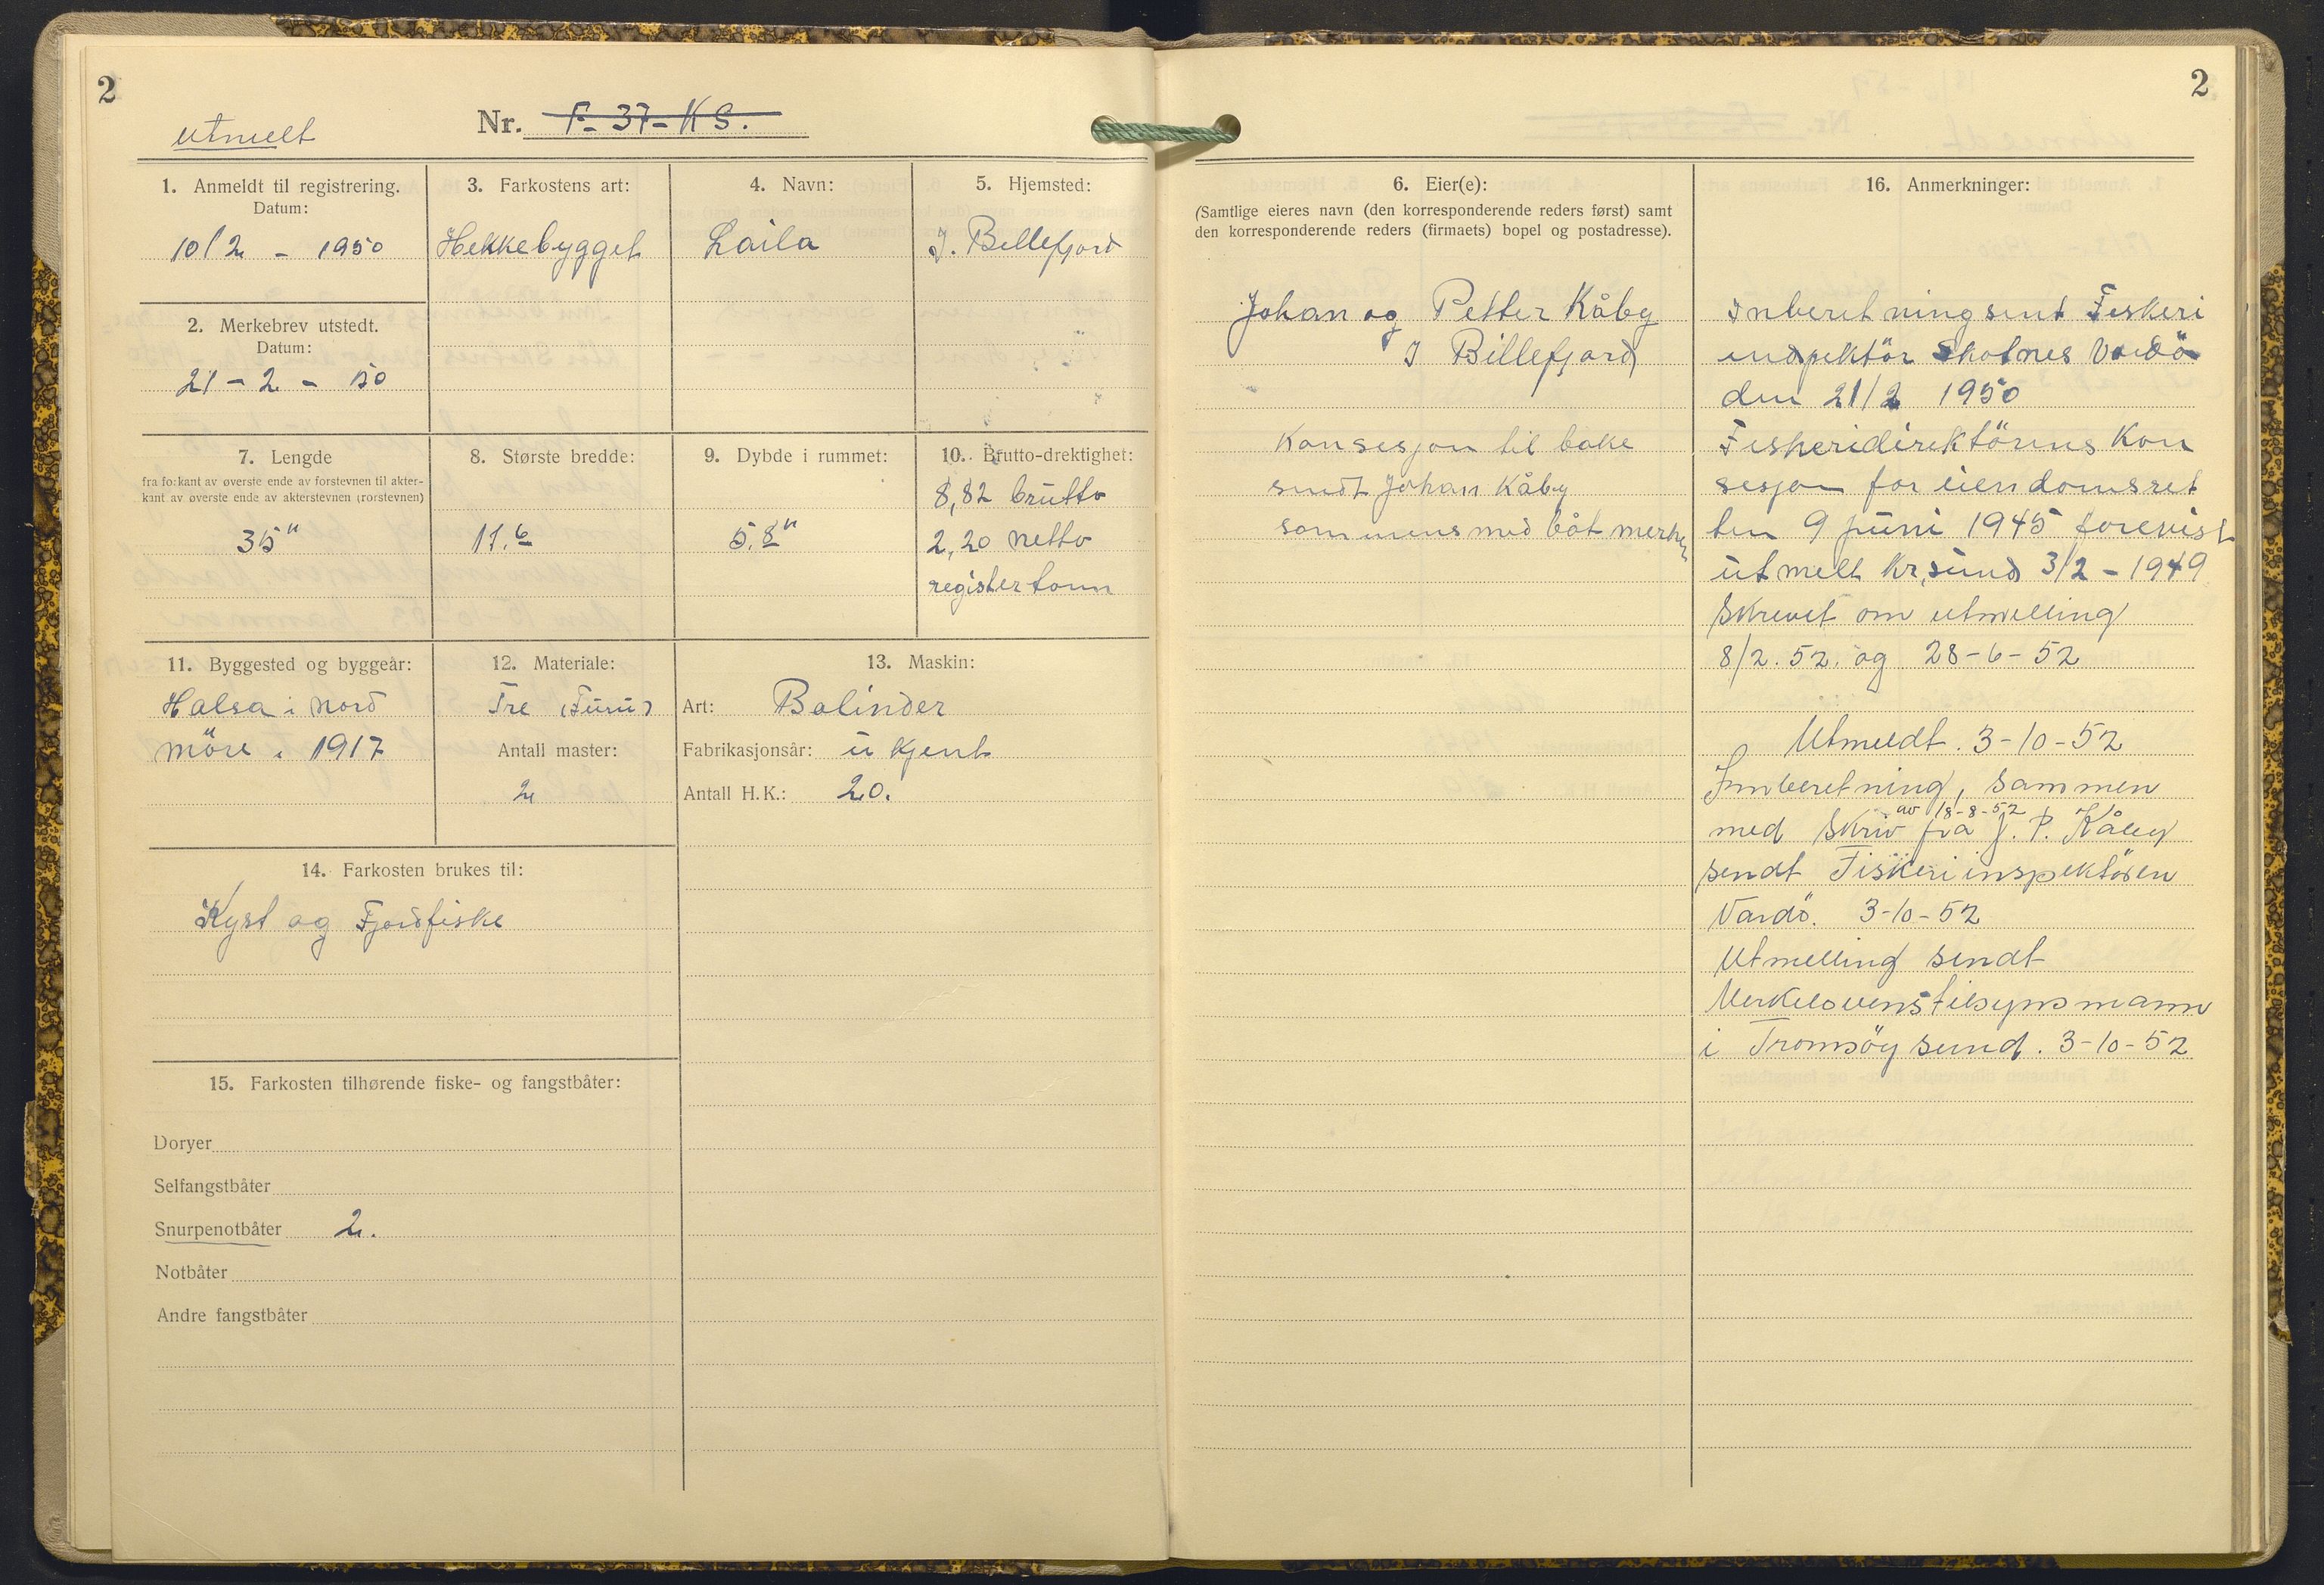 2
utmelt
Nr. F-37-KS.
1. Anmeldt til registrering.
Datum:
10/2 - 1950
2. Merkebrev utstedt.
Datum:
21-2-50
3. Farkostens art:
Hekkebygget
4. Navn:
Laila
5. Hjemsted:
I. Billefjord
7. Lengde
fra forkant av øverste ende av forstevnen til akter-
kant av øverste ende av akterstevnen (rorstevnen)
35"
8. Største bredde:
11.6
9. Dybde i rummet:
5.8"
10. Brutto-drektighet:
8,82 brutto
2,20 netto
register tonn
11. Byggested og byggeår:
Halsa i Nord
möre i 1917
12. Materiale:
Tre (Furu)
Antall master:
2
13. Maskin:
Art: Bolinder
Fabrikasjonsår: ukjent
Antall H.K.: 20.
14. Farkosten brukes til:
Kyst og Fjordfiske
15. Farkosten tilhørende fiske- og fangstbåter:
Doryer
Selfangstbåter
Snurpenotbåter 2.
Notbåter
Andre fangstbåter
2
6. Eier(e):
(Samtlige eieres navn (den korresponderende reders først) samt
den korresponderende reders (firmaets) bopel og postadresse).
Johan og Petter Kåby
I Billefjord
Konsesjon til bake
sendt Johan Kåby
sammens med båt merker
16. Anmerkninger:
Inberetning sent Fiskeri
inspektör Skotnes Vardö
den 21/2 1950
Fiskeridirektörens Kon
sesjon for eiendomsret
ten 9 juni 1945 forevist
utmelt Kr,sund 3/2 - 1949
Skrevet om utmelling
8/2. 52. og 28-6-52
Utmeldt. 3-10-52
Innberetning, sammen
med skriv av 18-8-52 fra J. P. Kåby
sendt Fiskeriinspektören
Vardö. 3-10-52
Utmelling sendt
Merkelovens tilsynsmann
i Tromsöysund. 3-10-52